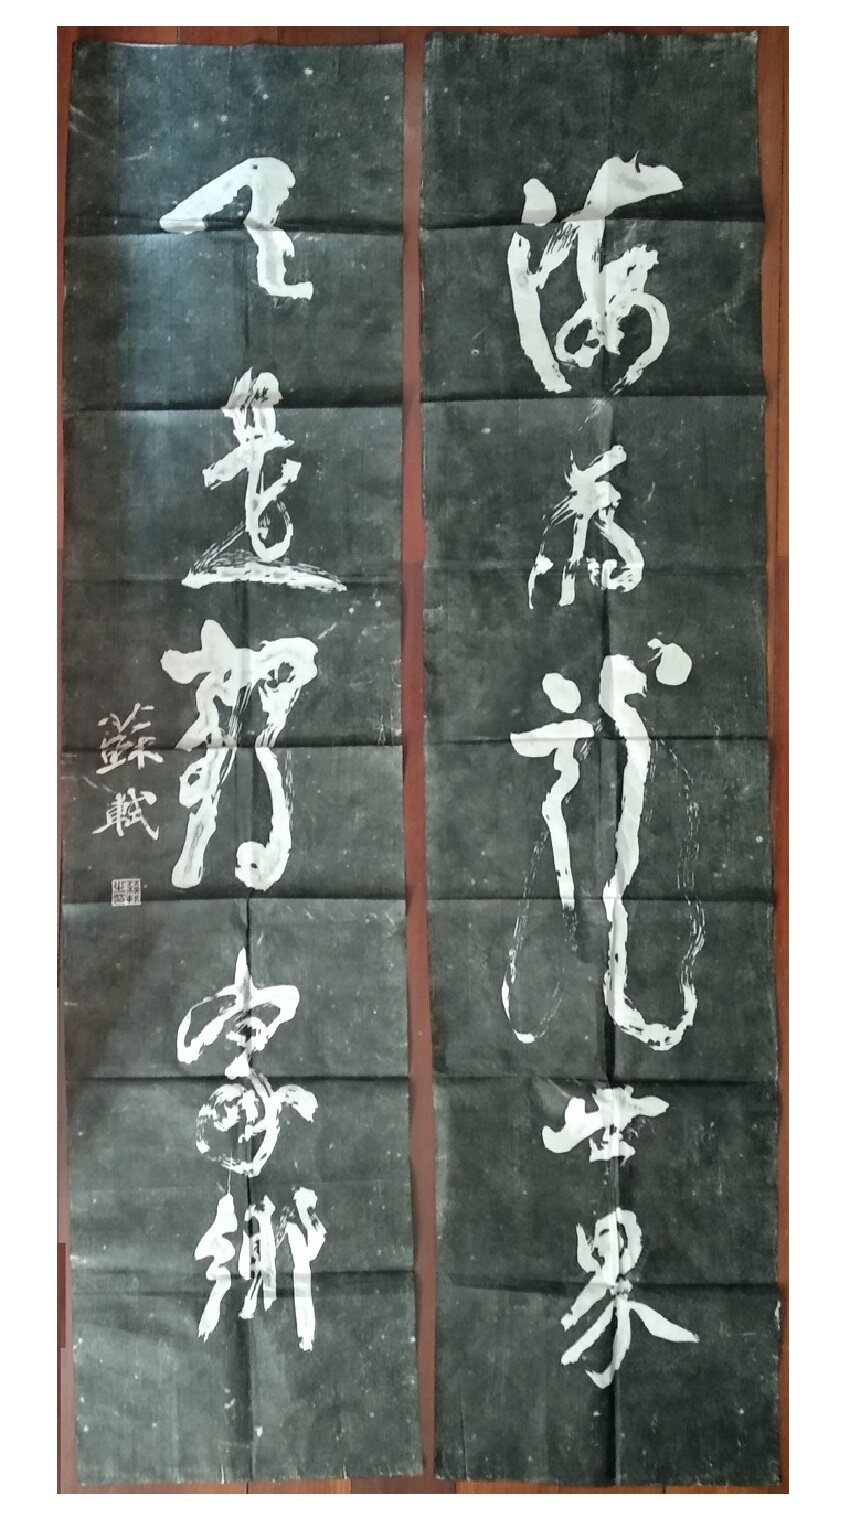 海為龍世界
天是鶴家鄉
蘇軾